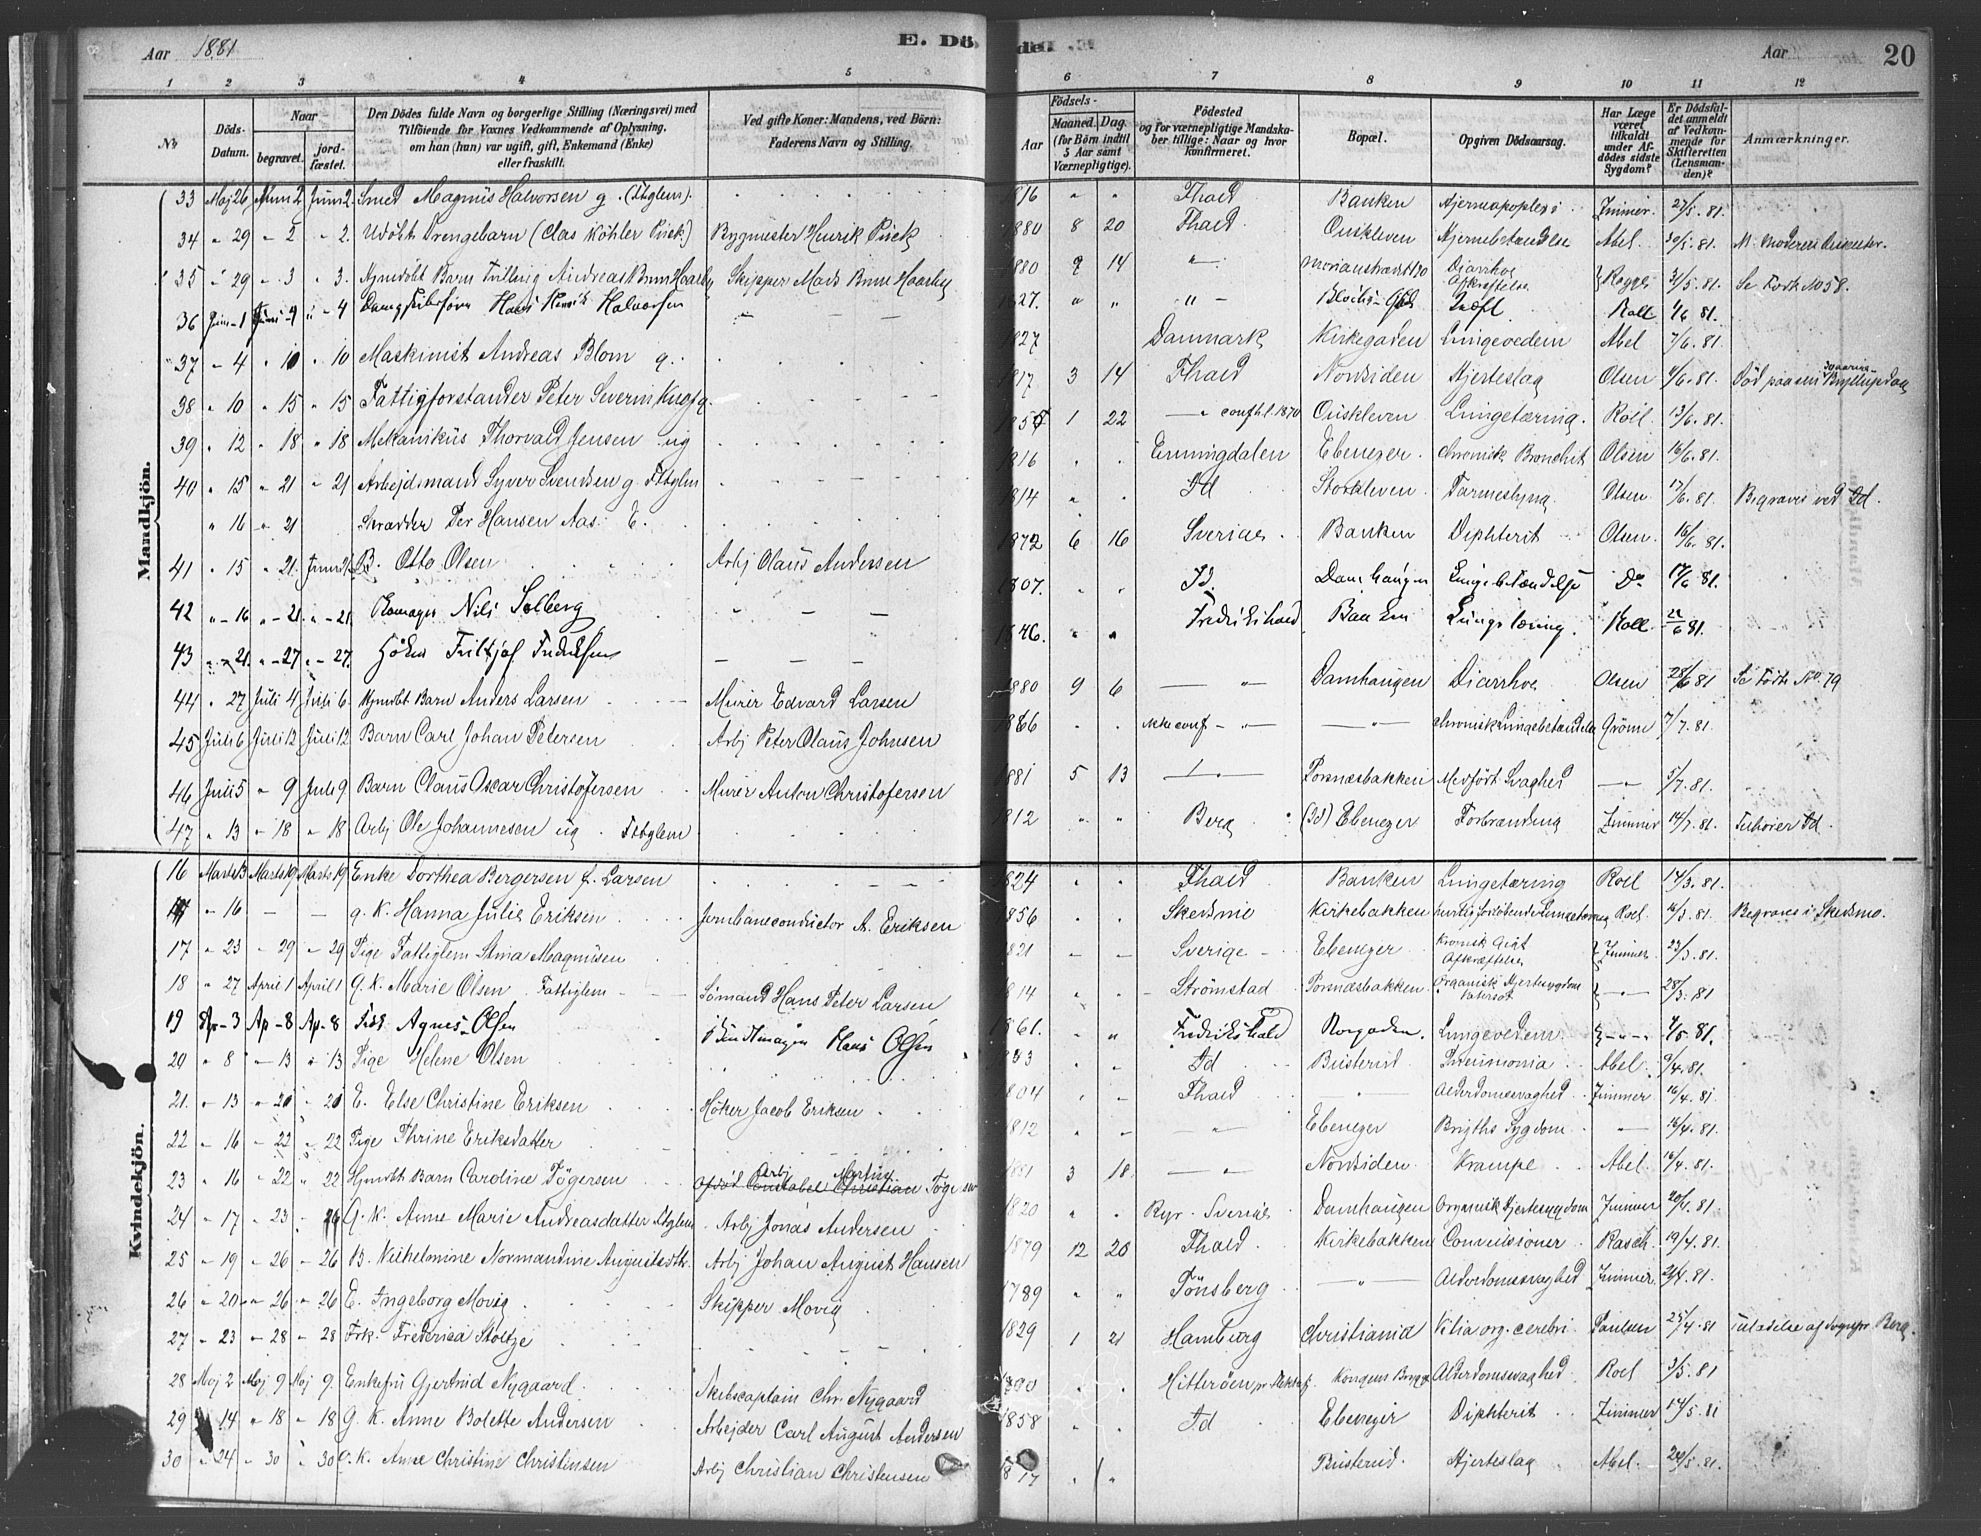 Aar 1881 E. Dö de. Aar 20
1 2 3 4 5 6 7 8 9 10 11 12
No Döds-Datum. Naar begravet. jord-fæstet. Den Dödes fulde Navn og borgerlige Stilling (Næringsvei) med Tilföiende for Voxnes Vedkommende af Oplysning, om han (hun) var ugift, gift, Enkemand (Enke) eller fraskilt. Ved gifte Koner: Mandens, ved Börn: Faderens Navn og Stilling. Födsels- Aar Maaned. Dag. (for Börn indtil 5 Aar samt Værnepligtige). Födested og for værnepligtige Mandskaber tillige: Naar og hvor konfirmeret. Bopæl. Opgiven Dödsaarsag. Har Læge været tilkaldt under Afdödes sidste Sygdom? Er Dödsfaldet anmeldt af Vedkommende for Skifteretten (Lensmanden)? Anmærkninger.
Mandkjön.
33 Maj 26 Juni 2 Juni 2. Smed Magnus Halvorsen g. (Ftbglem). 1816 " " Fhald Banken Hjerneapoplexi Zimmer. 27/5. 81.
34 " 29 " 2 " 2. Udöbt Drengebarn (Clas Köhler Pück) Bygmester Henrik Pück 1880 8 20 Fhald Ouskleven Hjernebetændelse Abel. 30/5. 81.
35 " 29 " 3 " 3. Hjmdöbt Barn Tvilling Andreas Bruun Haarby Skipper Mads Bruun Haarby 1880 9 14 " Diarrhoe Afkræftelse Roggn 31/5. 81. Se Födte No 58.
36 Juni 1 Juni 4 " 4 Hans Henrik Halvorsen 1827. " " " Roll 1/6 81.
37 " 4 " 10 " 10 Maskinist Andreas Blom g. 1827 Danmark Kirkegaden Lungeoedem Abel 7/6. 81.
38 " 10 " 15 " 15 Fattigforstander Peter Severin g. 1817 3 14 Fhald Nordsiden Hjerteslag Olsen 11/6. 81. Död paa sin Bryllupsdag
39 " 12 " 18 " 18 Mekanikus Thorvald Jensen ug 1 22 " confht. 1870 Ouskleven Lungetæring. Roll. 13/6. 81.
40 " 15 " 21 " 21 Arbejdsmand Syver Svendsen g. Ftbglem 1816 Enningdalen Ebenezer. chronisk Bronchit Olsen 16/6. 81.
" 16 " 21 Skrædder Per Hansen Aas. E. 1814 " Id Storkleven. Tarmeslyng. Olsen. 17/6. 81. Begraves ved Id.
41 " 15 " 21. Juni 21. B. Otto Olsen Arbj Olaus Andersen 1872 6 16 Sverige Banken Diphterit Olsen. 16/6. 81.
42 " 16 " 21. " 21. Nils Solberg 1807. Id. Damhaugen Lungebetændelse Do 17/6 81.
43 " 21. " 27 " 27. Höker Fritjof Fredriksen 1846. " " Fredrikshald Banken Lungetæring. Roll 22/6 81.
44 " 27 Juli 4 Juli 6. Hjmdöbt Barn Anders Larsen Murer Edvard Larsen 1880 9 6 " Damhaugen Diarrhoe Olsen 28/6 81 Se Födte No. 79
45 Juli 6 Juli 12 Juli 12 Barn Carl Johan Petersen Arbj Peter Olaus Johnsen 1866 ikke conf " " chronisk Lungebetændelse Grönn 7/7. 81.
46 Juli 5 " 9 Juli 9 Barn Claus Oscar Christofersen Murer Anton Christofersen 1881 5 13 " Porsnæsbakken Medfödt Svaghed " 5/7. 81.
47 " 13 " 18 " 18 Arbj Ole Johannesen ug Ftbglem 1812 " " Berg (Id) Ebenezer Forbrænding Zimmer 14/7. 81. Tilhörer Id.
Kvindekjön.
16 Marts 13 Marts 19 Marts 19 Enke Dorthea Bergersen f. Larsen 1824 Fhald Banken Lungetæring Roll 14/3. 81.
" 16 — — g. K. Hanna Julie Eriksen Jernbaneconductor A. Eriksen 1856 Skedsmo Kirkebakken Roll. 16/3. 81. Begraves i Skedsmo.
17 " 23 " 29 " 29 Pige Fattiglem Stina Magnusen 1821 Sverige Ebenezer Kronisk Gigt Afkræftelse Zimmer. 23/3. 81.
18 " 27 April 1 April 1 G. K. Marie Olsen Fattiglem Sömand Hans Peter Larsen 1814 Strömstad Porsnæsbakken Organisk Hjertesygdom Vatersot " 28/3. 81
19 Apr 3 Ap 8 Ap 8 Agnes Olsen Bundtmager Hans Olsen 1861. Fredrikshald Lungeoedem.
20 " 8 " 13 " 13 Pige Helene Olsen Id Busterud Pneumonia Abel 9/4. 81.
21. " 13 " 20 " 20 E. Else Christine Eriksen Höker Jacob Eriksen 1804 Fhald " Alderdomssvaghed Zimmer 16/4. 81
22 " 16 " 22 " 22 Pige Thrine Eriksdatter 1812 " Ebenezer Brigths Sygdom. " 16/4. 81.
23 " 16 " 22 " 22 Hjmdöbt Barn Caroline Tögersen Arbj Martius Constabel Christian Tögersen 1881 3 18. " Nordsiden Krampe Abel. 16/4. 81.
24 " 17 " 23 " G. K. Anne Marie Andreasdatter Ftbglem Arbj Jonas Andersen 1820 Ryr. Sverige Damhaugen Organisk Hjertesygdom Zimmer 20/4. 81.
25 " 19 " 26 " 26 B. Wilhelmine Normandine Augustsdtr. Arbj Johan August Hansen 1879 12 20 Fhald. Kirkebakken Convulsioner Rasch. 19/4. 81.
26 " 20 " 26 " 26 E. Ingeborg Movig Skipper Movig 1789 Tönsberg " Alderdomssvaghed Zimmer 21/4. 81.
27 " 23 " 28 " 28 Frk. Frederica Stoltze 1829 1 21 Hamburg Christianid Vitia org. cerebri Paulsen 25/4. 81 Berg.
28 Maj 2 Maj 9 Maj 9. Enkefru Gjertrud Nygaard Skibscaptain Chr. Nygaard 1800 Hitteröen Kongens Brygge Alderdomssvaghed Roll 3/5. 81
29 14 " 18 " 18 G. K. Anne Bolette Andersen Arbejder Carl August Andersen 1858 Id Ebenezer Diphterit. Zimmer 14/5. 81
30 " 24 " 30 " 30 G. K. Anne Christine Christensen Arbj Christian Christensen 1817 " " Busterud. Hjerteslag Abel 24/5. 81.